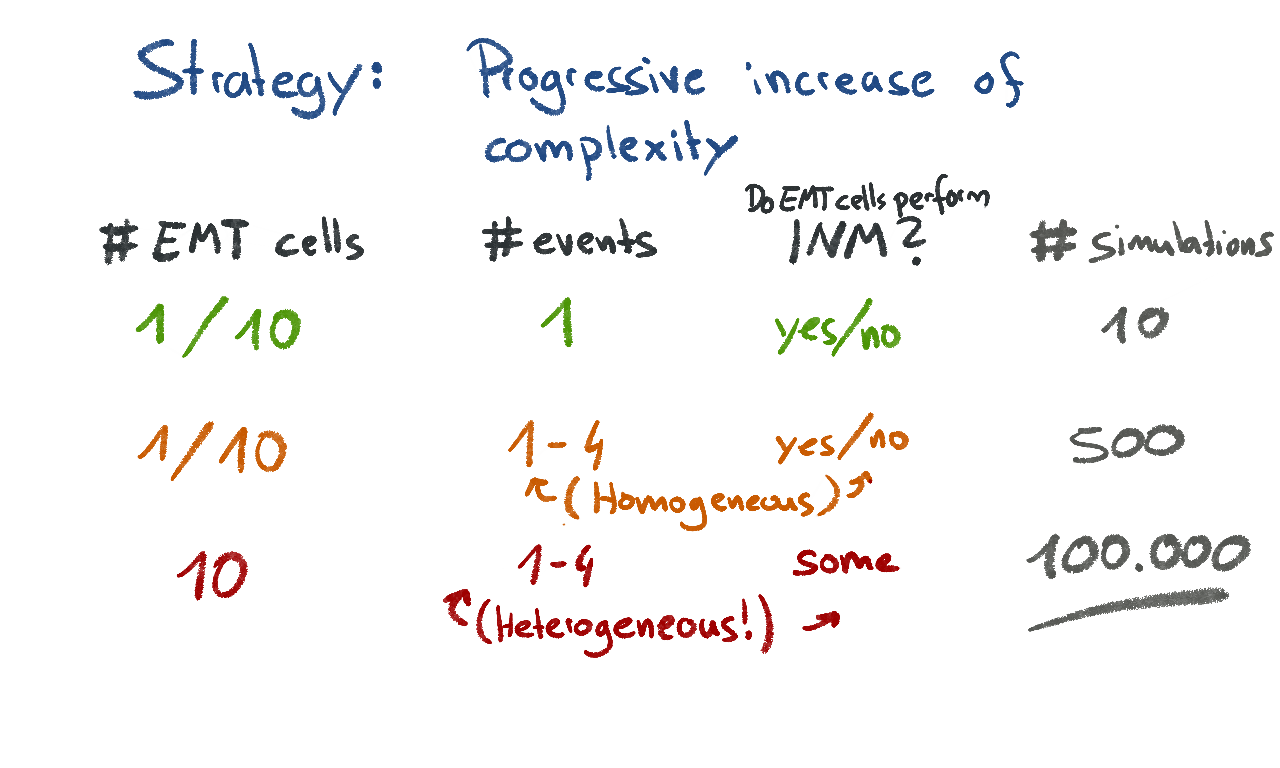 Strategy: Progressive increase of
complexity
Do EMT cells perform
# EMT cells # events INM? # simulations
1/10 1 yes/no 10
1/10 1-4 yes/no 500
(Homogeneous)
10 1-4 some 100.000
(Heterogeneous!)